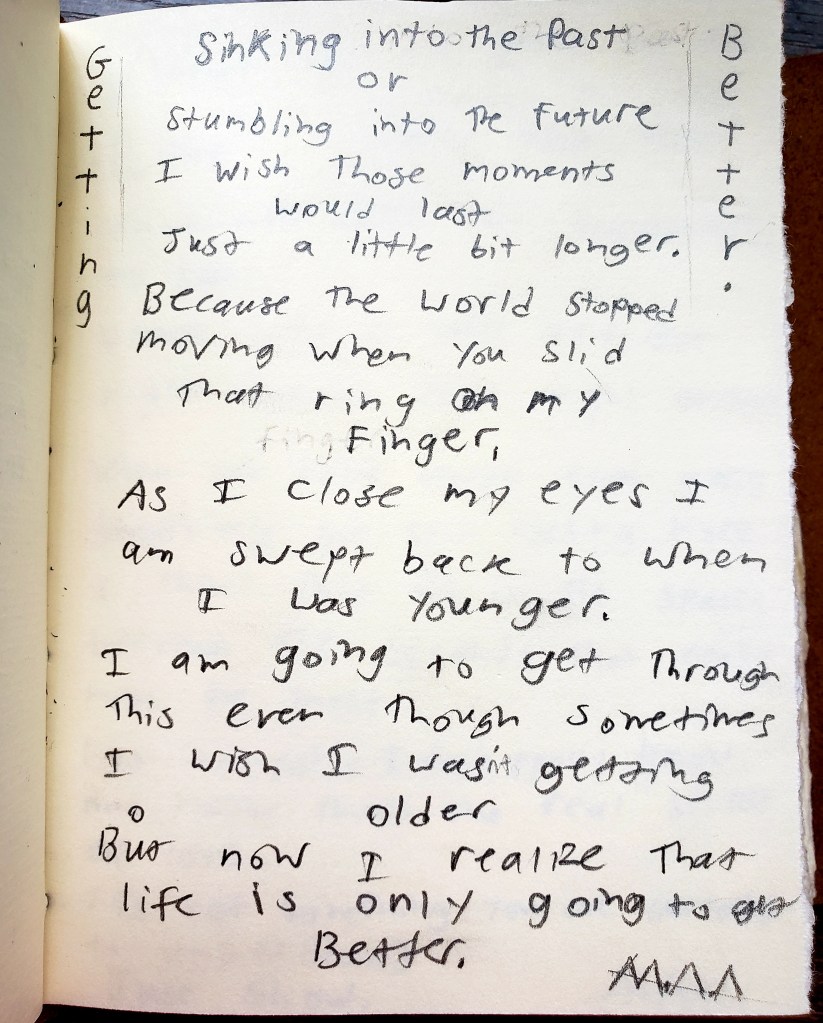 Getting
Better.
Sinking into the Past
or
Stumbling into The Future
I wish Those moments
would last
Just a little bit longer.
Because The world stopped
moving when you slid
That ring on my
Finger,
As I close my eyes I
am swept back to when
I was younger.
I am going to get Through
This even Though sometimes
I wish I wasn't getting
older
But now I realize That
life is only going to get
Better.